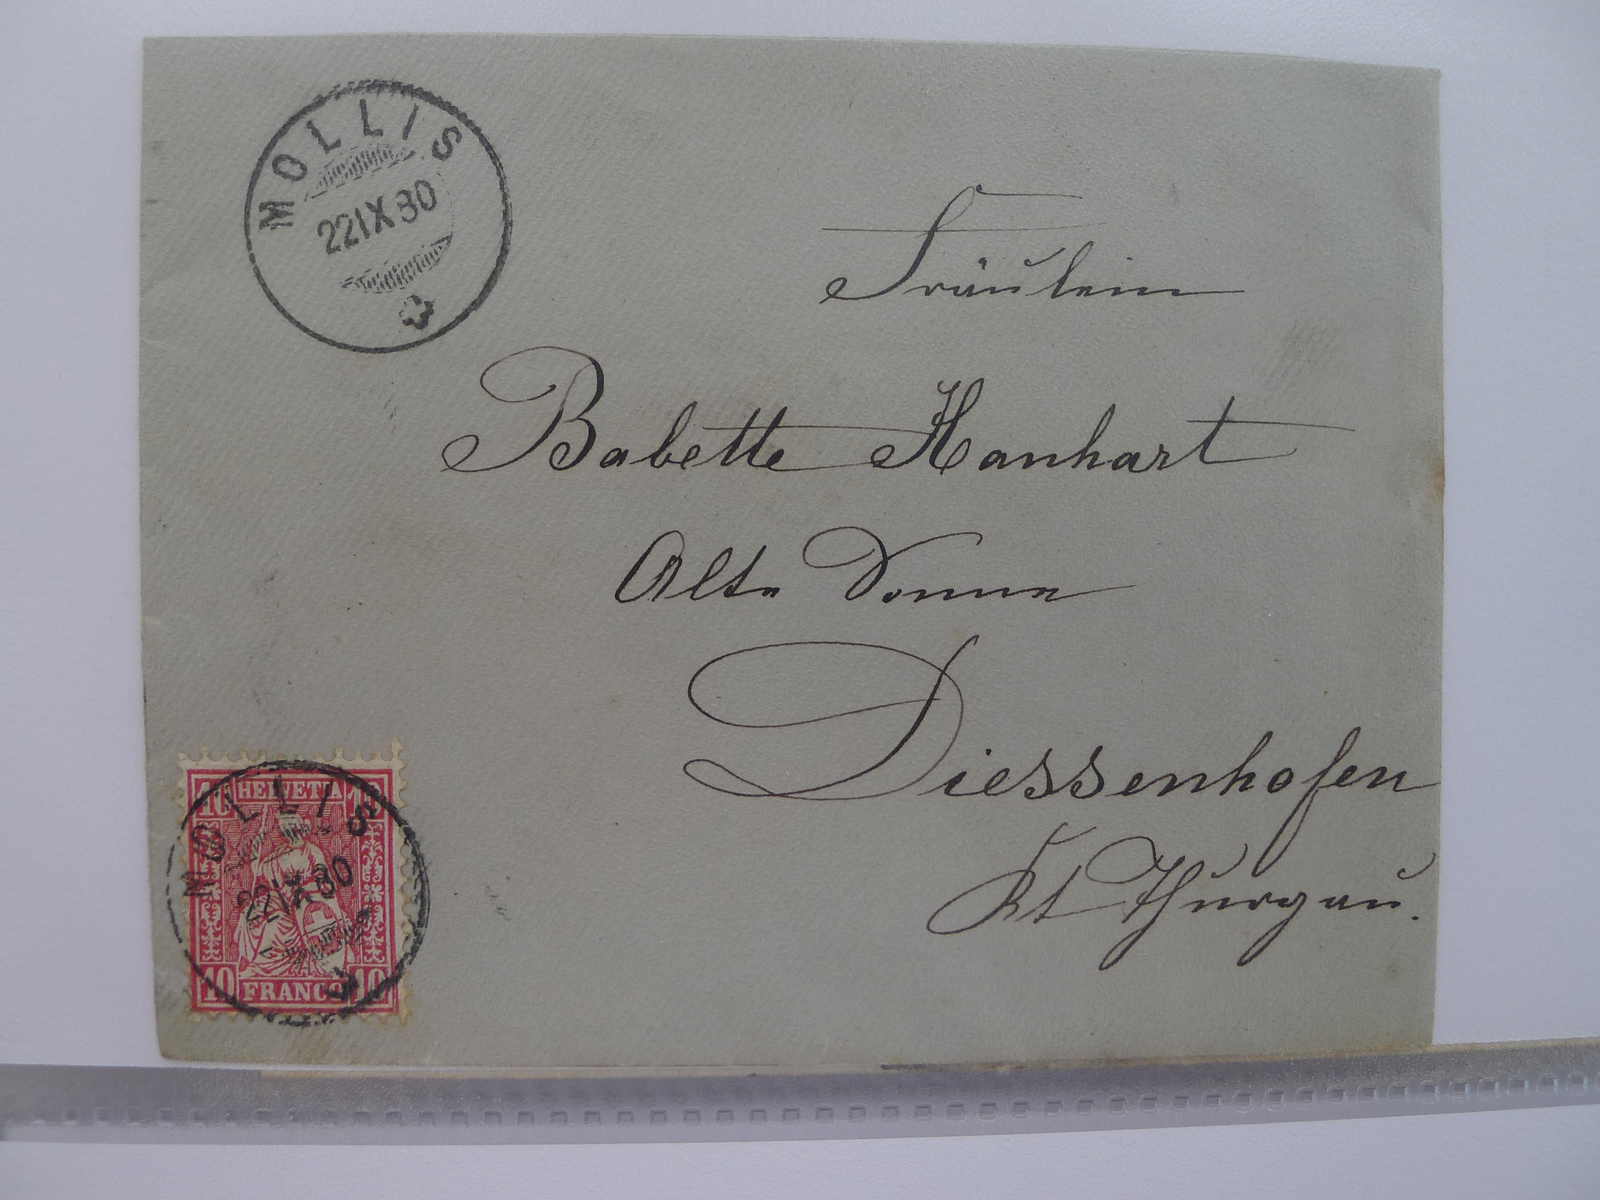 MOLLIS
22 IX 80
Fräulein
Babette Hanhart
Alte Sonne
Diessenhofen
Kt Thurgau.
10 HELVETIA 10
MOLLIS
22 IX 80
10 FRANCO 10